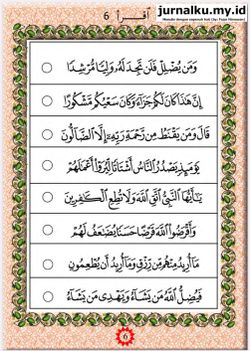 jurnalku.my.id
اقرأ 6
وَمَن يُضْلِلْ فَلَن تَجِدَ لَهُ وَلِيًّا مُّرْشِدًا
إِنَّ هَٰذَا كَانَ لَكُمْ جَزَآءً وَكَانَ سَعْيُكُم مَّشْكُورًا
قَالَ وَمَن يَقْنَطُ مِن رَّحْمَةِ رَبِّهِ إِلَّا الضَّآلُّونَ
يَوْمَئِذٍ يَصْدُرُ النَّاسُ أَشْتَاتًا لِّيُرَوْا أَعْمَالَهُمْ
يَٰٓأَيُّهَا النَّبِيُّ اتَّقِ اللَّهَ وَلَا تُطِعِ الْكَٰفِرِينَ
وَأَقْرَضُوا اللَّهَ قَرْضًا حَسَنًا يُضَٰعَفُ لَهُمْ
مَآ أُرِيدُ مِنْهُم مِّن رِّزْقٍ وَمَآ أُرِيدُ أَن يُطْعِمُونِ
فَيُضِلُّ اللَّهُ مَن يَشَآءُ وَيَهْدِي مَن يَشَآءُ
6